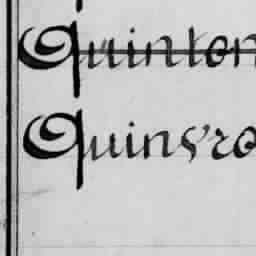 Quinton
Quinsro